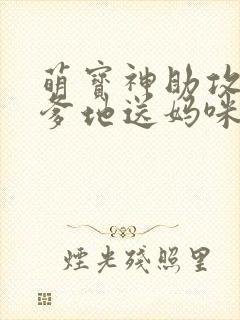 萌寶神助攻
爹地送媽咪
煙光殘照里